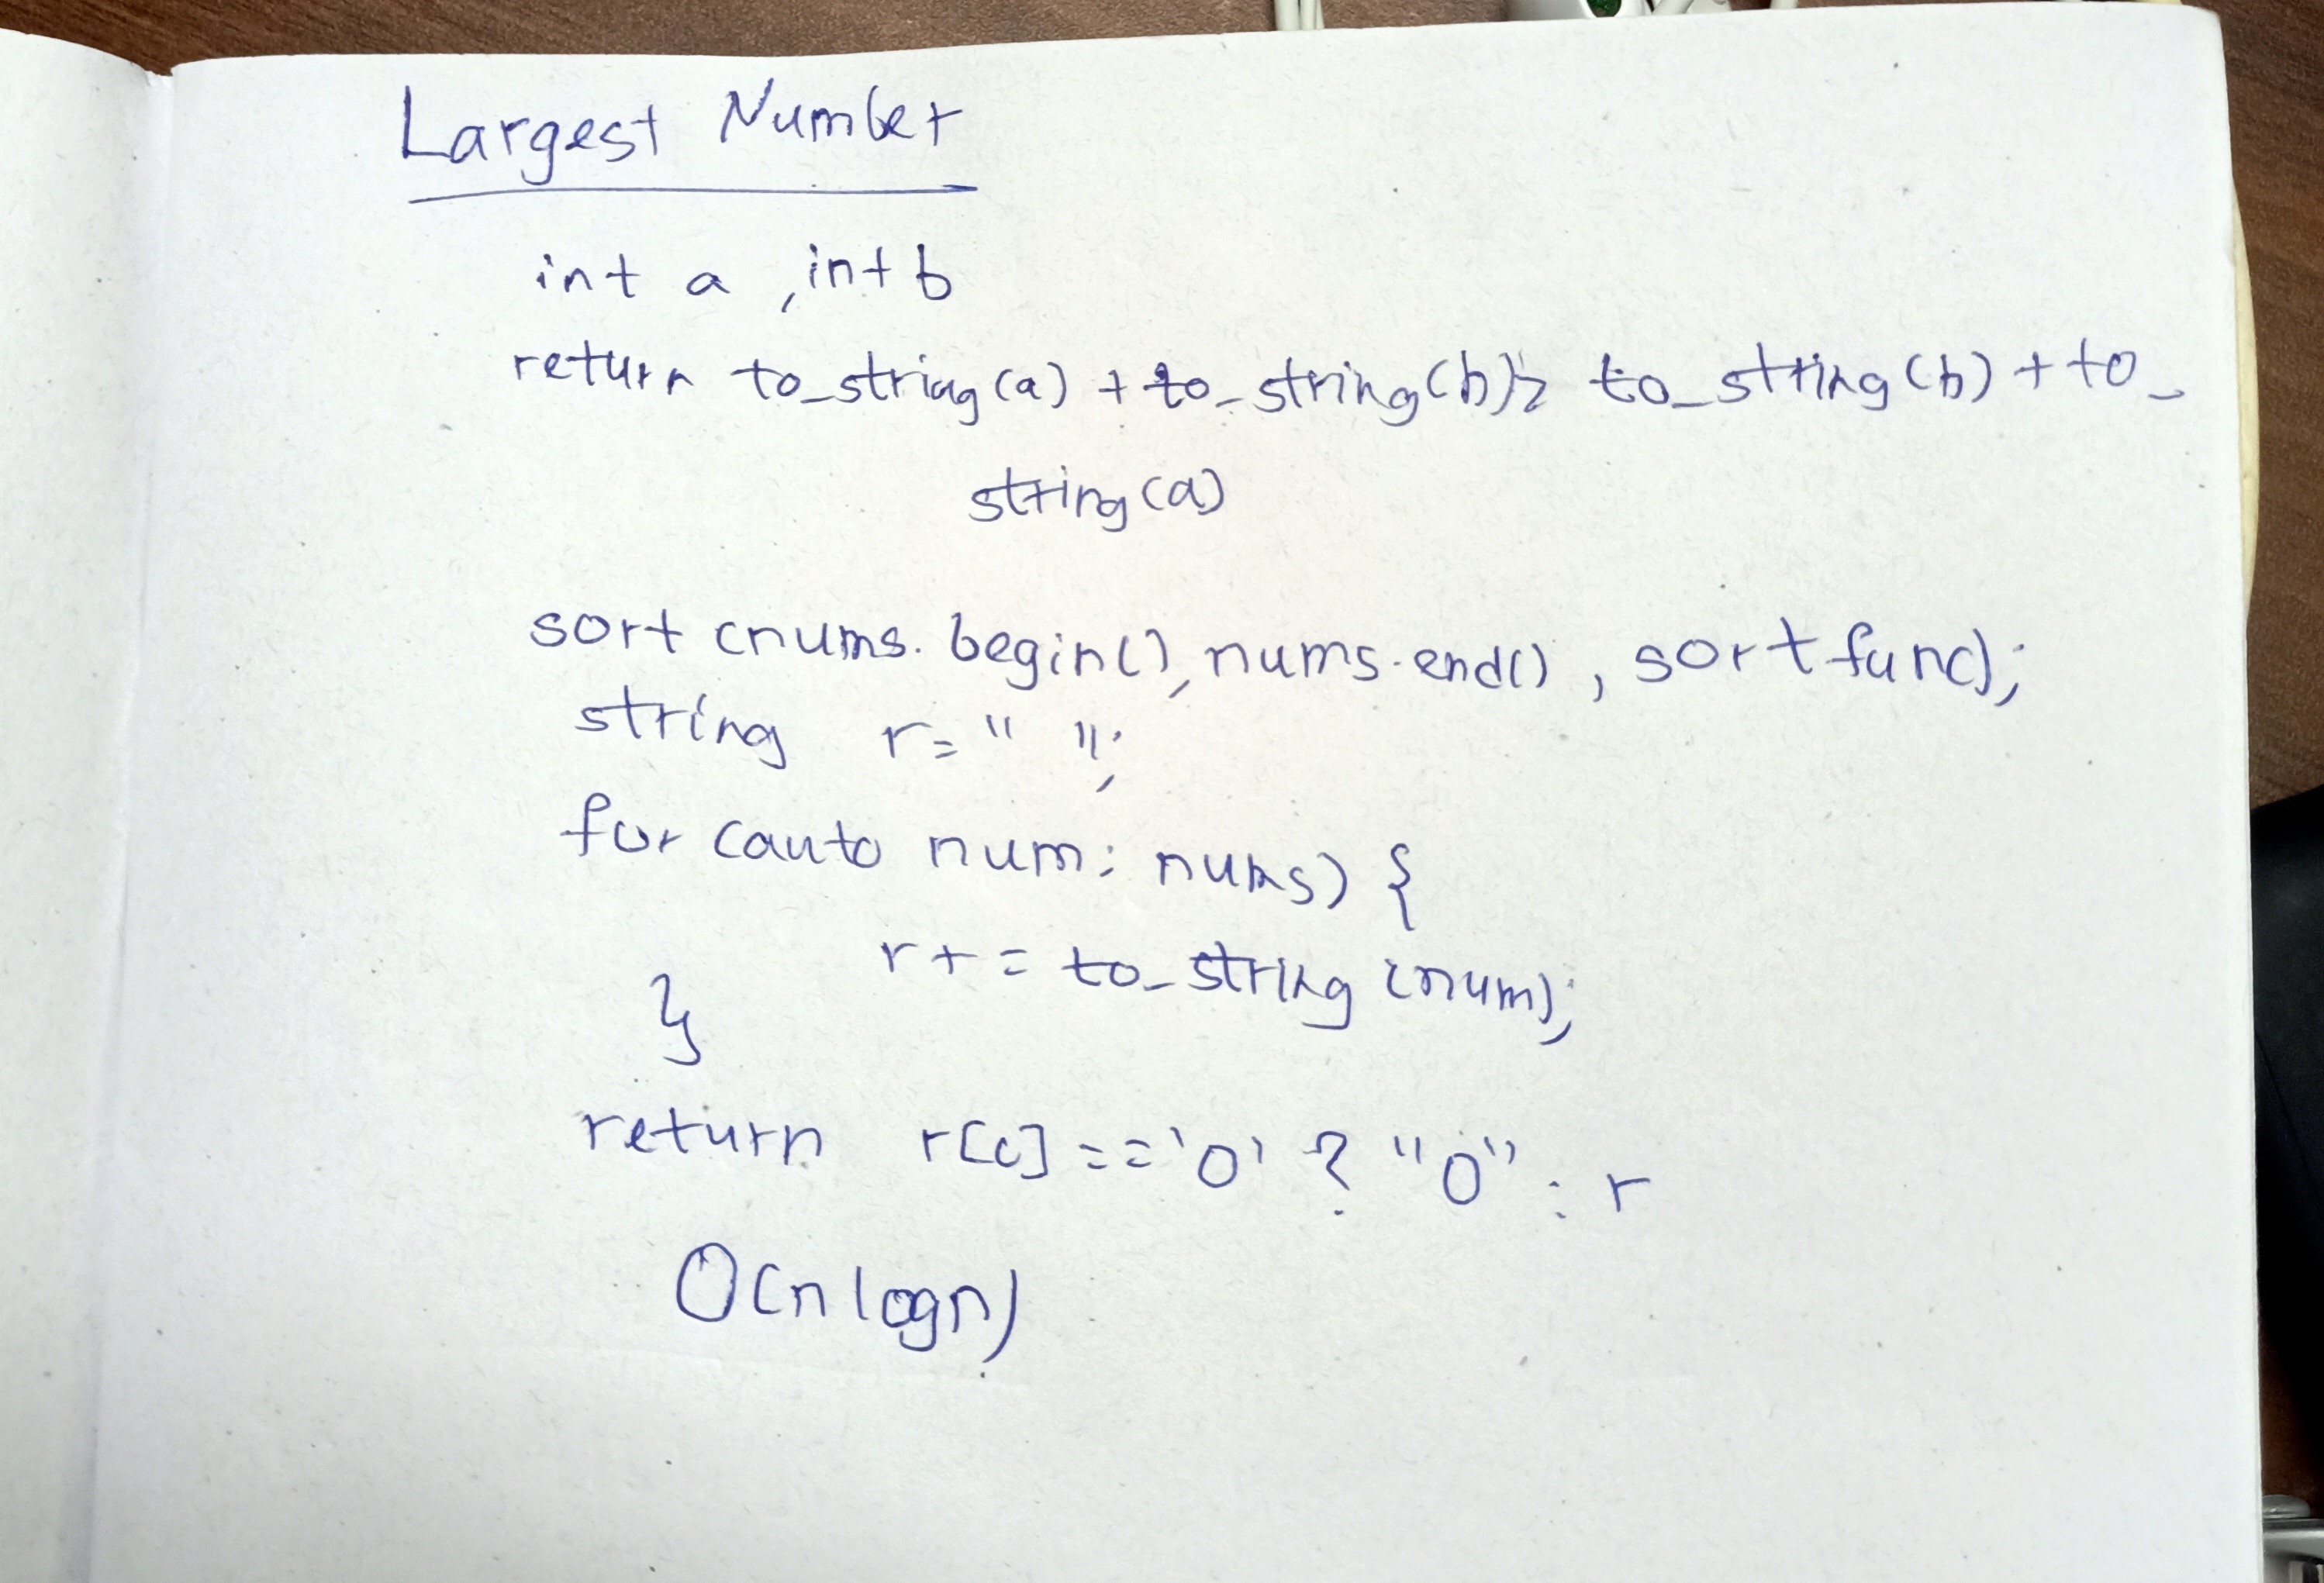 Largest Number
int a , int b
return to_string(a) + to_string(b)> to_string(b) + to_
string(a)
sort (nums.begin(), nums.end() , sort func);
string r= " ";
for (auto num: nums) {
r += to_string (num);
}
return r[0] == '0' ? "0" : r
O(n logn)